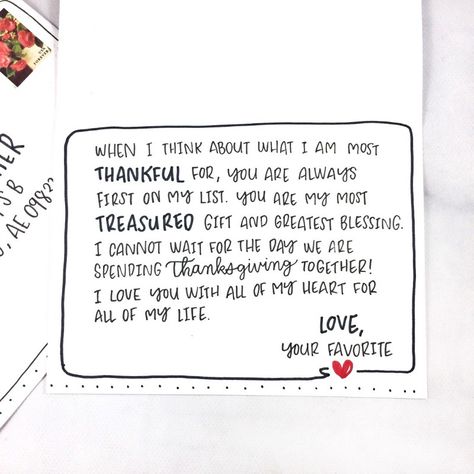 WHEN I THINK ABOUT WHAT I AM MOST
THANKFUL FOR, YOU ARE ALWAYS
FIRST ON MY LIST. YOU ARE MY MOST
TREASURED GIFT AND GREATEST BLESSING.
I CANNOT WAIT FOR THE DAY WE ARE
SPENDING Thanksgiving TOGETHER!
I LOVE YOU WITH ALL OF MY HEART FOR
ALL OF MY LIFE.
LOVE,
YOUR FAVORITE
AE